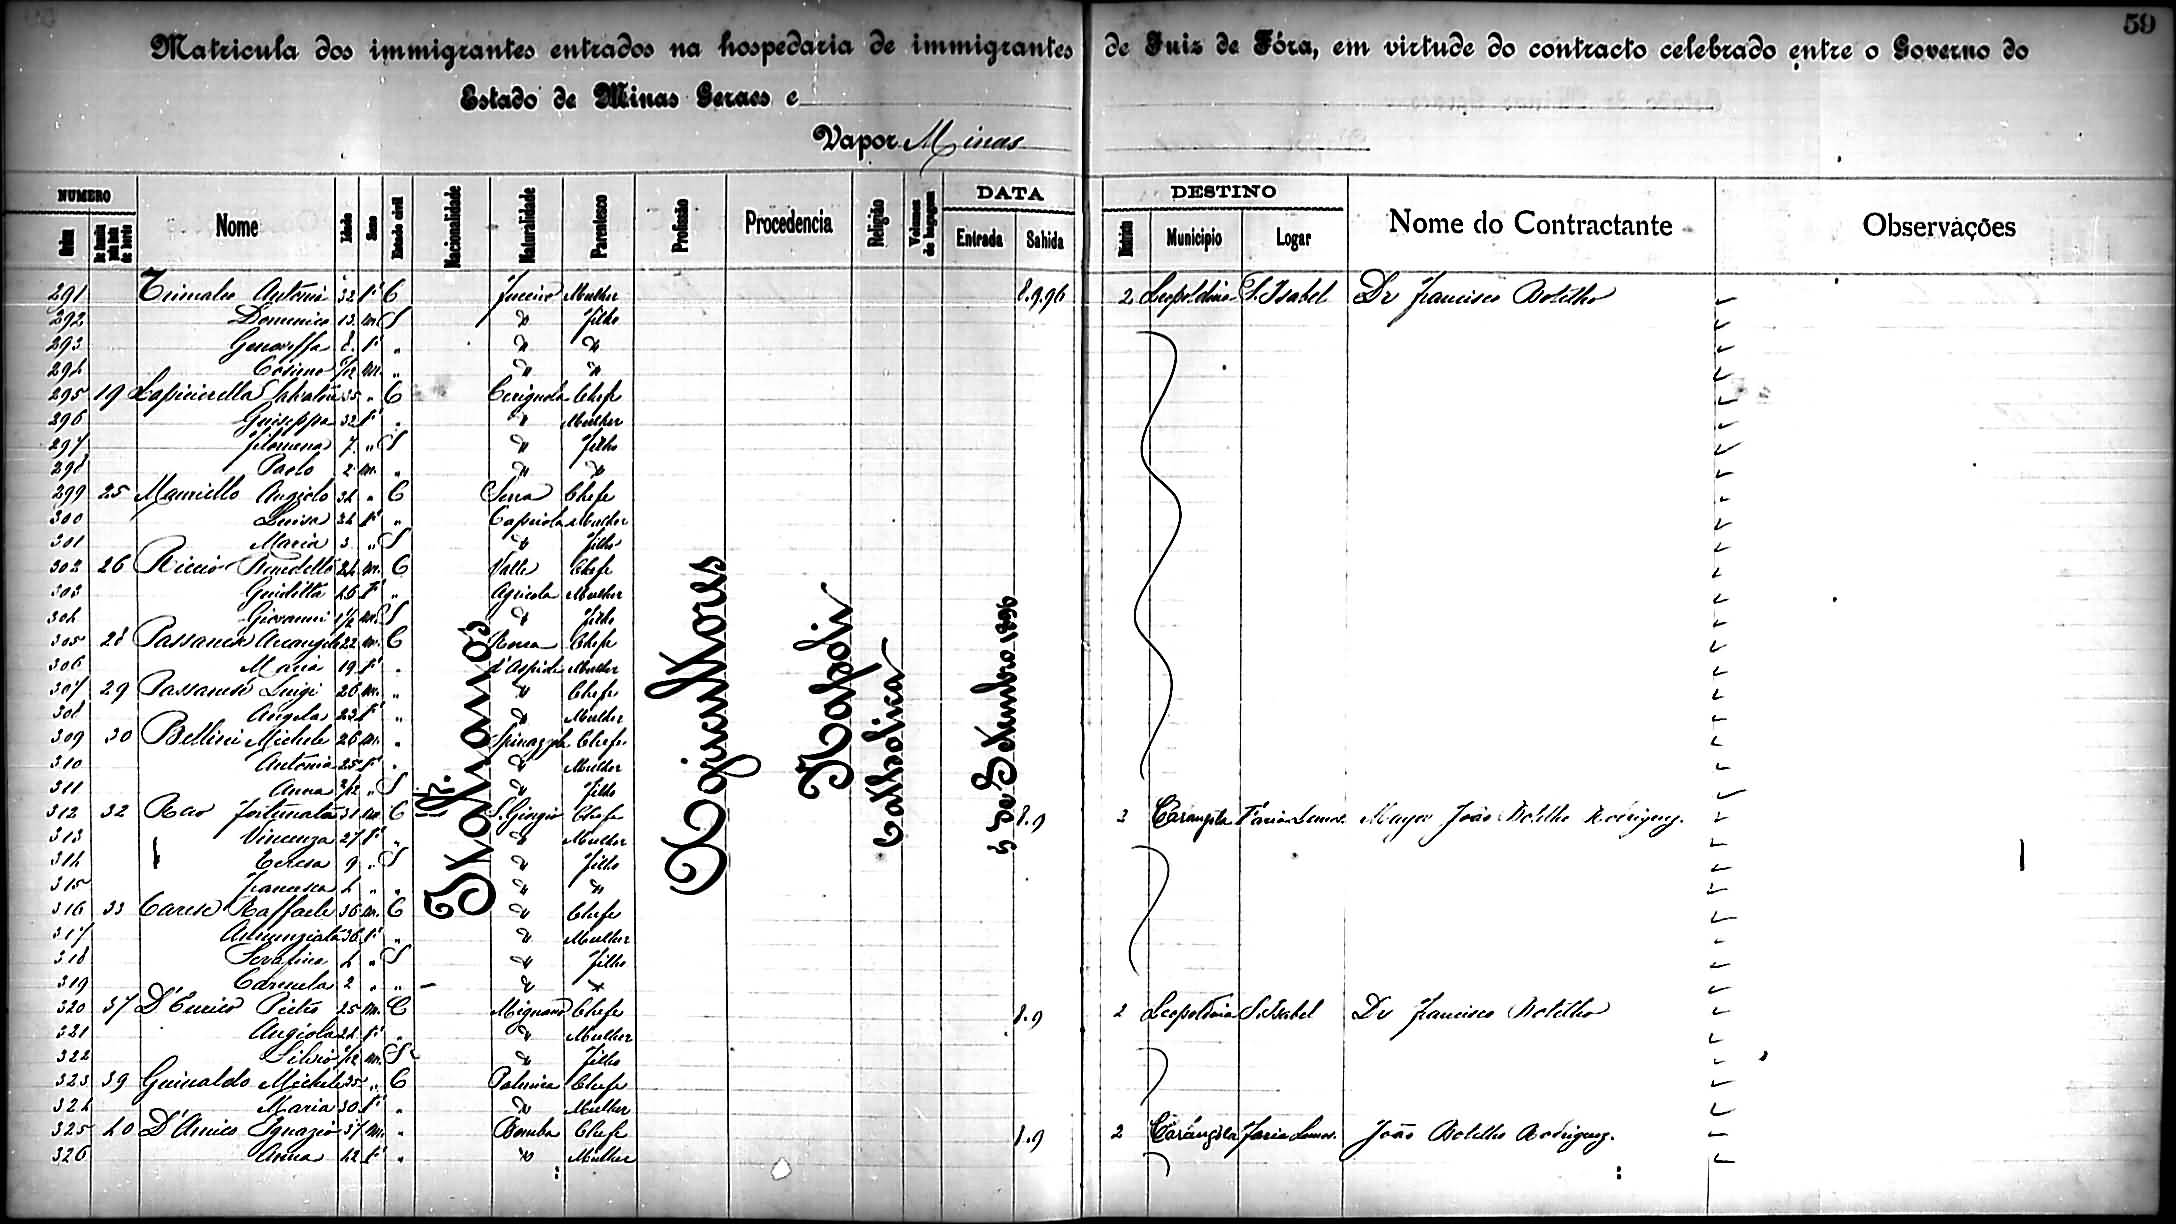 59
Matricula dos immigrantes entrados na hospedaria de immigrantes de Juiz de Fóra, em virtude do contracto celebrado entre o Governo do
Estado de Minas Geraes e
Vapor Minas
NUMERO Nome Idade Sexo Estado civil Nacionalidade Naturalidade Parentesco Profissão Procedencia Religião Volumes de bagagem DATA Entrada Sahida DESTINO Municipio Logar Nome do Contractante Observações
Italianos Agricultores Napoli Catholica 5 de Setembro 1896
291 Antonia 32 fª C Mulher 8.9.96 2 Leopoldina S. Isabel Dr Francisco Botelho
292 Domenico 13 m S " Filho
293 Genoveffa 8 fª " " "
294 Cosimo /12 m. " " "
295 19 35 " C Cerignola Chefe
296 Guiseppa 32 fª " " Mulher
297 Filomena 7 " S " Filho
298 Paolo 2 m. " " "
299 25 Mauriello Angiolo 34 " C Serra Chefe
300 Luisa 34 fª " Capriola Mulher
301 Maria 3 " S " Filho
302 26 Riccio 24 m. C Valle Chefe
303 Guiditta 26 fª " Agricola Mulher
304 Giovanni 1/2 m. S " Filho
305 28 Passanese Arcangelo 22 m. C Chefe
306 Maria 19 fª " d'Aspide Mulher
307 29 Passanese Luigi 26 m. " " Chefe
308 Angela 23 fª " " Mulher
309 30 Bellini Michele 26 m. " Spinazzola Chefe
310 Antonia 25 fª " " Mulher
311 Anna /12 " S " Filho
312 32 Rao Fortunato 31 m C S. Giorgio Chefe 8.9 2 Carangola Faria Lemos. Major João Botelho Rodriguez.
313 Vincenza 27 fª " " Mulher
314 Teresa 9 " S " Filho
315 Francesca 4 " " " "
316 33 Carese Raffaele 36 m. C " Chefe
317 Annunziata 36 fª " " Mulher
318 Serafina 4 " S " Filho
319 Carmela 2 " " "
320 37 D'Enrico Pietro 25 m. C Mignano Chefe 8.9 2 Leopoldina S. Isabel Dr Francisco Botelho
321 Angiola 24 fª " " Mulher
322 Silvio /12 m. S " Filho
323 39 Guinaldo Michele 35 " C Chefe
324 Maria 30 fª " " Mulher
325 40 D'Amico Ignazio 37 m. " Bomba Chefe 8.9 2 Carangola Faria Lemos. João Botelho Rodriguez.
326 Anna 42 fª " " Mulher